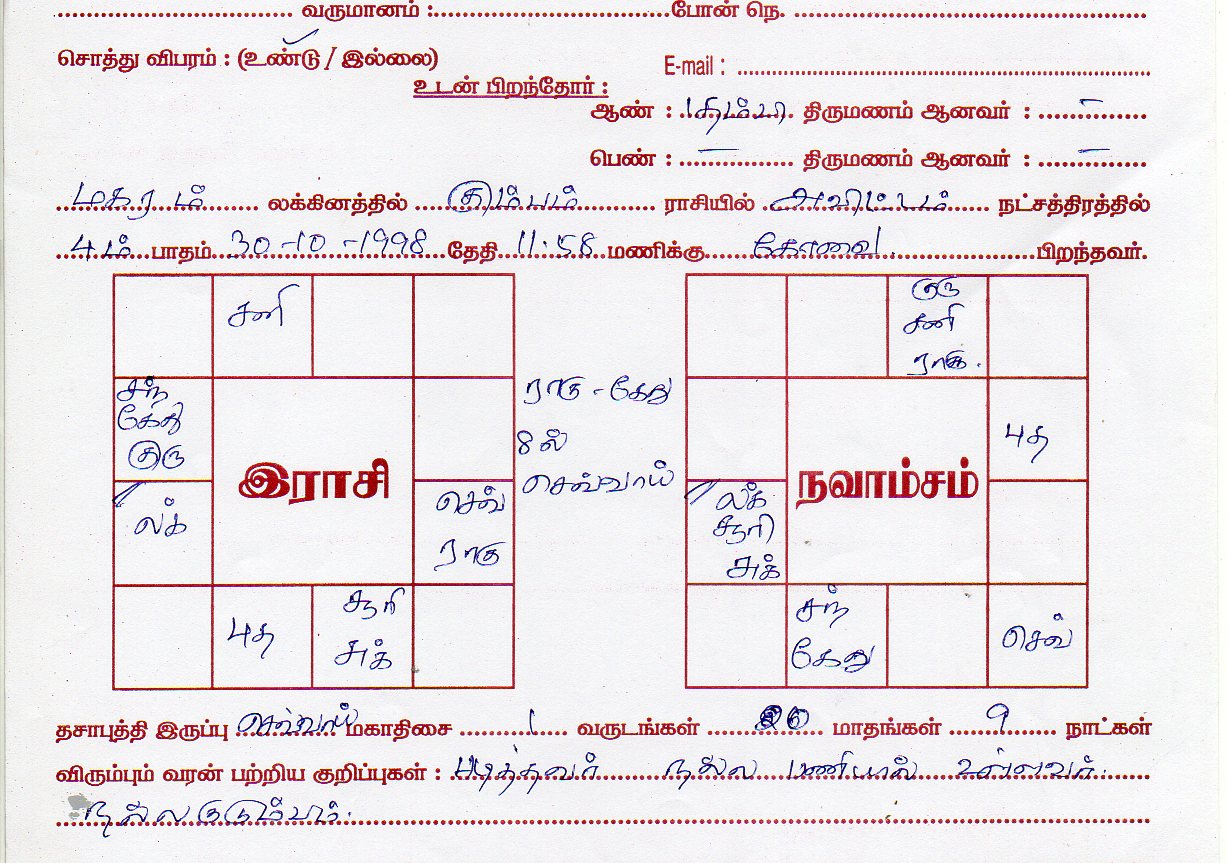 வருமானம் : போன் நெ.
சொத்து விபரம் : (உண்டு / இல்லை)
E-mail :
உடன் பிறந்தோர் :
ஆண் : 1 தம்பி திருமணம் ஆனவர் : –
பெண் : – திருமணம் ஆனவர் : –
மகரம் லக்கினத்தில் கும்பம் ராசியில் அவிட்டம் நட்சத்திரத்தில்
4ம் பாதம் 30-10-1998 தேதி 11:58 மணிக்கு கோவை. பிறந்தவர்.
சனி
சந்
கேது
குரு
இராசி
லக்
செவ்
ராகு
புத
சூரி
சுக்
ராகு - கேது
8ல்
செவ்வாய்
குரு
சனி
ராகு.
புத
நவாம்சம்
லக்
சூரி
சுக்
சந்
கேது
செவ்
தசாபுத்தி இருப்பு செவ்வாய் மகாதிசை 1 வருடங்கள் மாதங்கள் 9 நாட்கள்
விரும்பும் வரன் பற்றிய குறிப்புகள் : படித்தவர் நல்ல பணியில் உள்ளவர்.
நல்ல குடும்பம்.